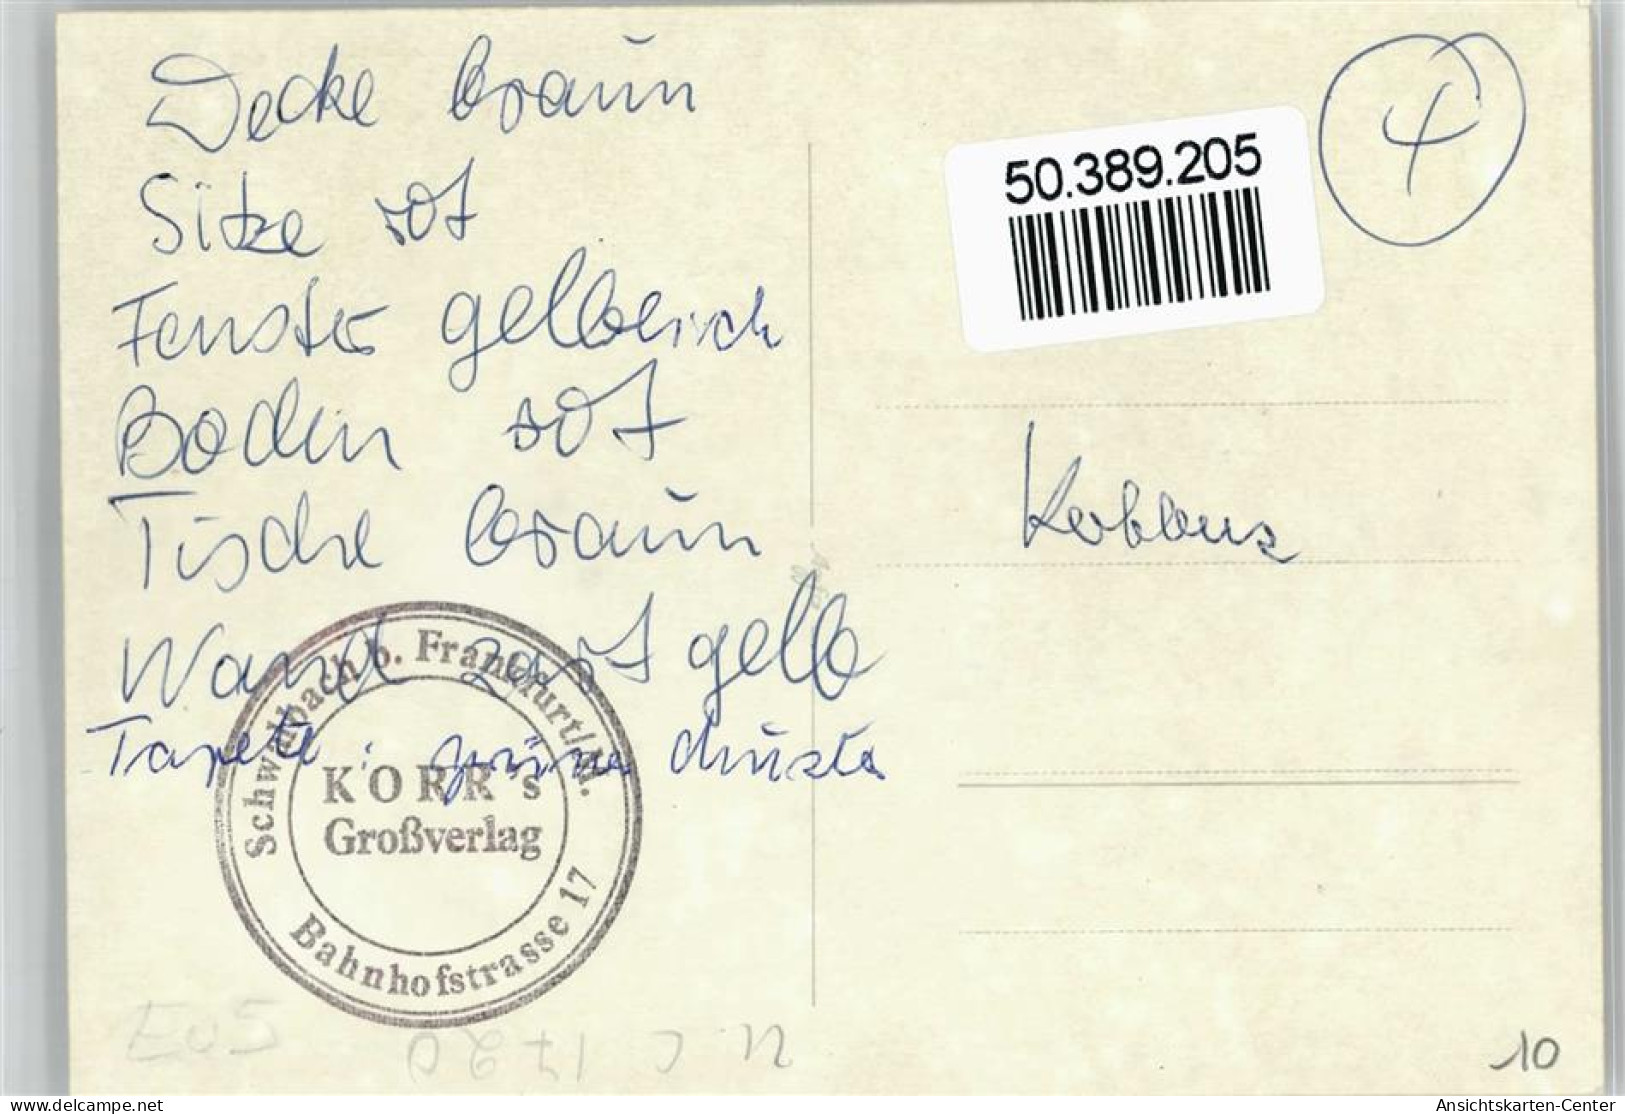 Decke braun
Sitze rot
Fenster gelblich
Boden rot
Tische braun
Wand zart gelb
Tapete: grüne
Schwalbach b. Frankfurt/M.
KORR's
Großverlag
Bahnhofstrasse 17
4
50.389.205
Koblenz
EuS
10
delcampe.net
Ansichtskarten-Center